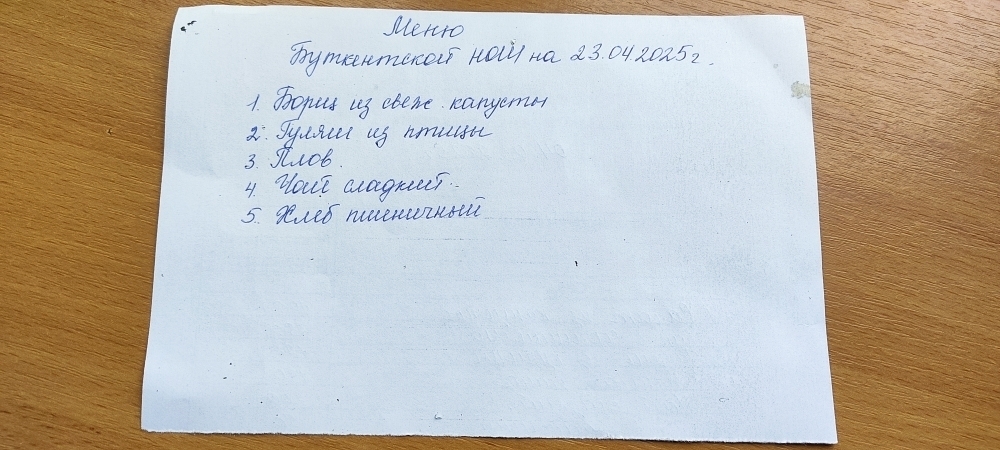 Меню
Буткентской НОШ на 23.04.2025г.
1. Борщ из свеж. капусты
2. Гуляш из птицы
3. Плов.
4. Чай сладкий.
5. Хлеб пшеничный